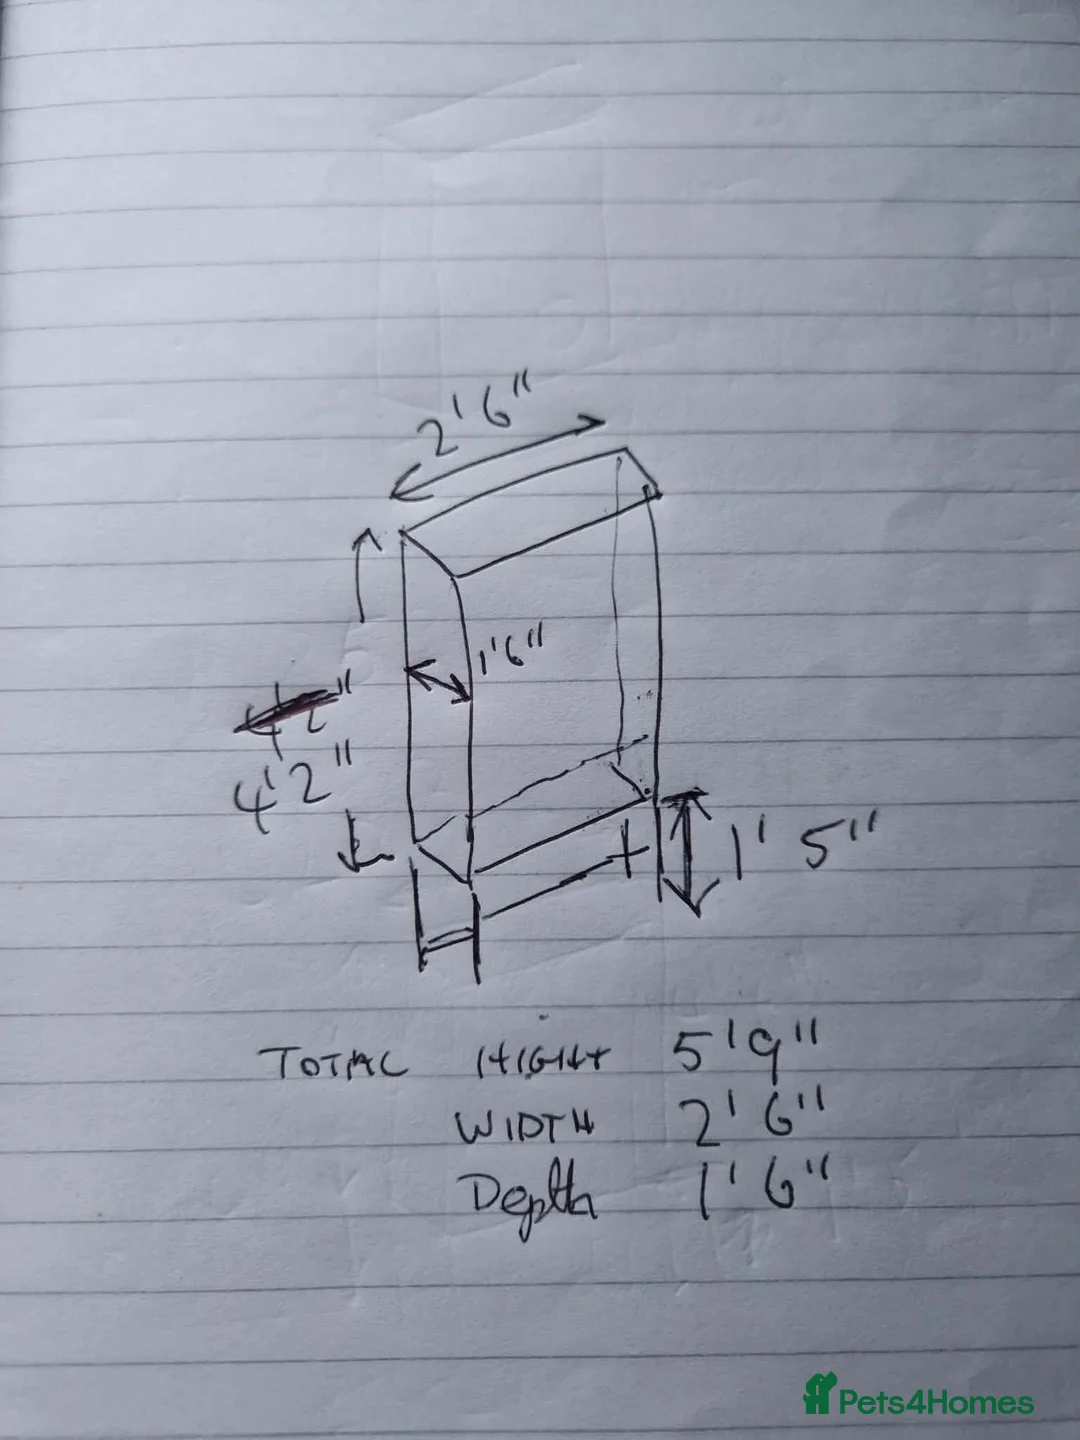 2'6"
1'6"
4'2"
1'5"
TOTAL HIGHT 5'9"
WIDTH 2'6"
Depth 1'6"
Pets4Homes